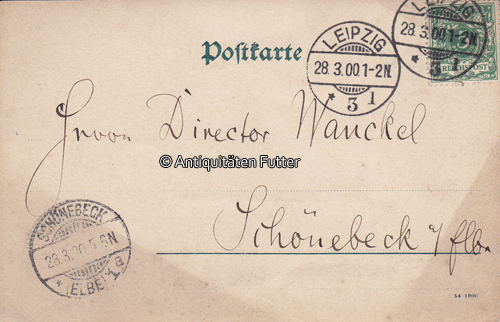 Postkarte
LEIPZIG
28.3.00.1-2N.
* 3 1
LEIPZIG
28.3.00.1-2N.
* 3 1
REICHSPOST
Herrn Director Wanckel
© Antiquitäten Futter
Schönebeck a/Elbe.
SCHÖNEBECK
28.3.00.5-6N
* (ELBE) 1a
54 1900